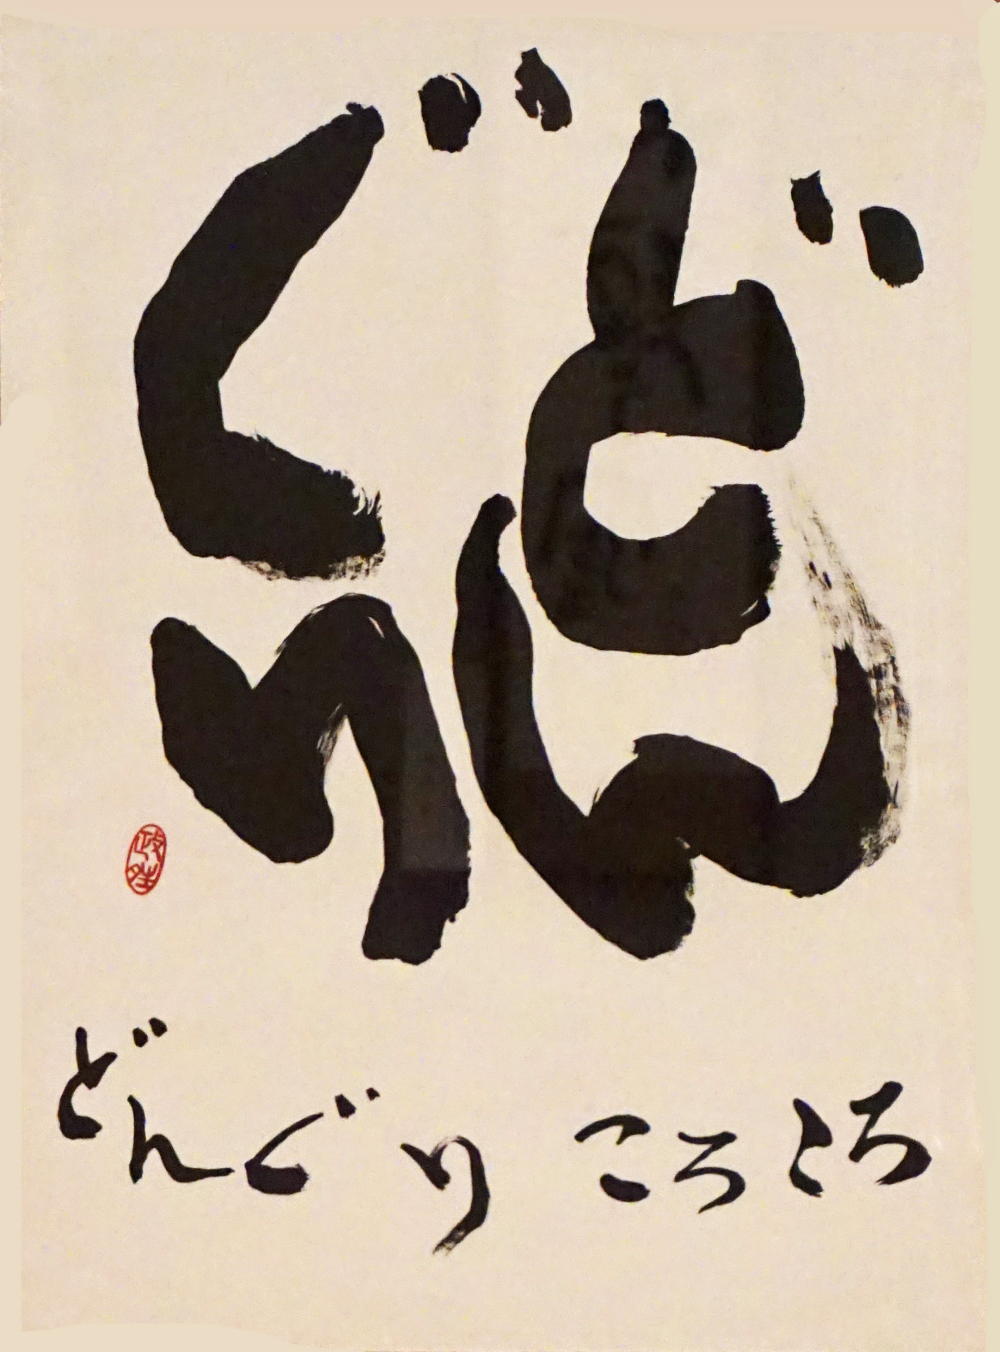 どん
ぐり
どんぐり ころころ